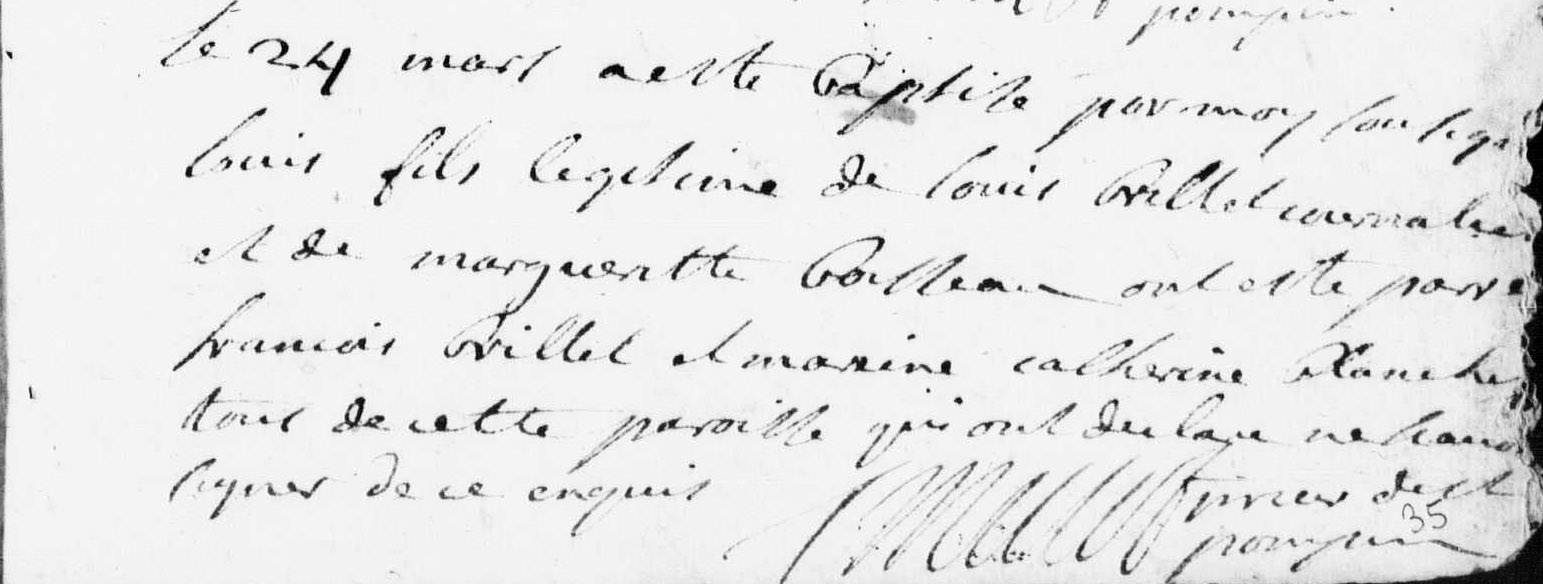 pompin
le 24 mars a este baptisé par moy sousign
louis fils legitime de louis Brillet journalie
et de margueritte Boisseau ont este parre
francois Brillet et marine catherine Planche
tous de cette paroisse qui ont declare ne scavo
signer de ce enquis prieur de st
pompin
35